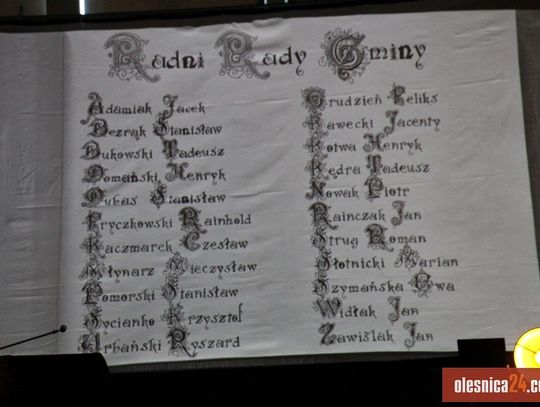 Radni Rady Gminy
Adamiak Jacek
Bezrąk Stanisław
Bukowski Tadeusz
Domański Henryk
Dubas Stanisław
Fryczkowski Rainhold
Kaczmarek Czesław
Młynarz Mieczysław
Pomorski Stanisław
Sycianko Krzysztof
Urbański Ryszard
Grudzień Feliks
Kawecki Jacenty
Kotwa Henryk
Kędra Tadeusz
Nowak Piotr
Rainczak Jan
Strug Roman
Słotnicki Marian
Szymańska Ewa
Widłak Jan
Zawiślak Jan
olesnica24.c